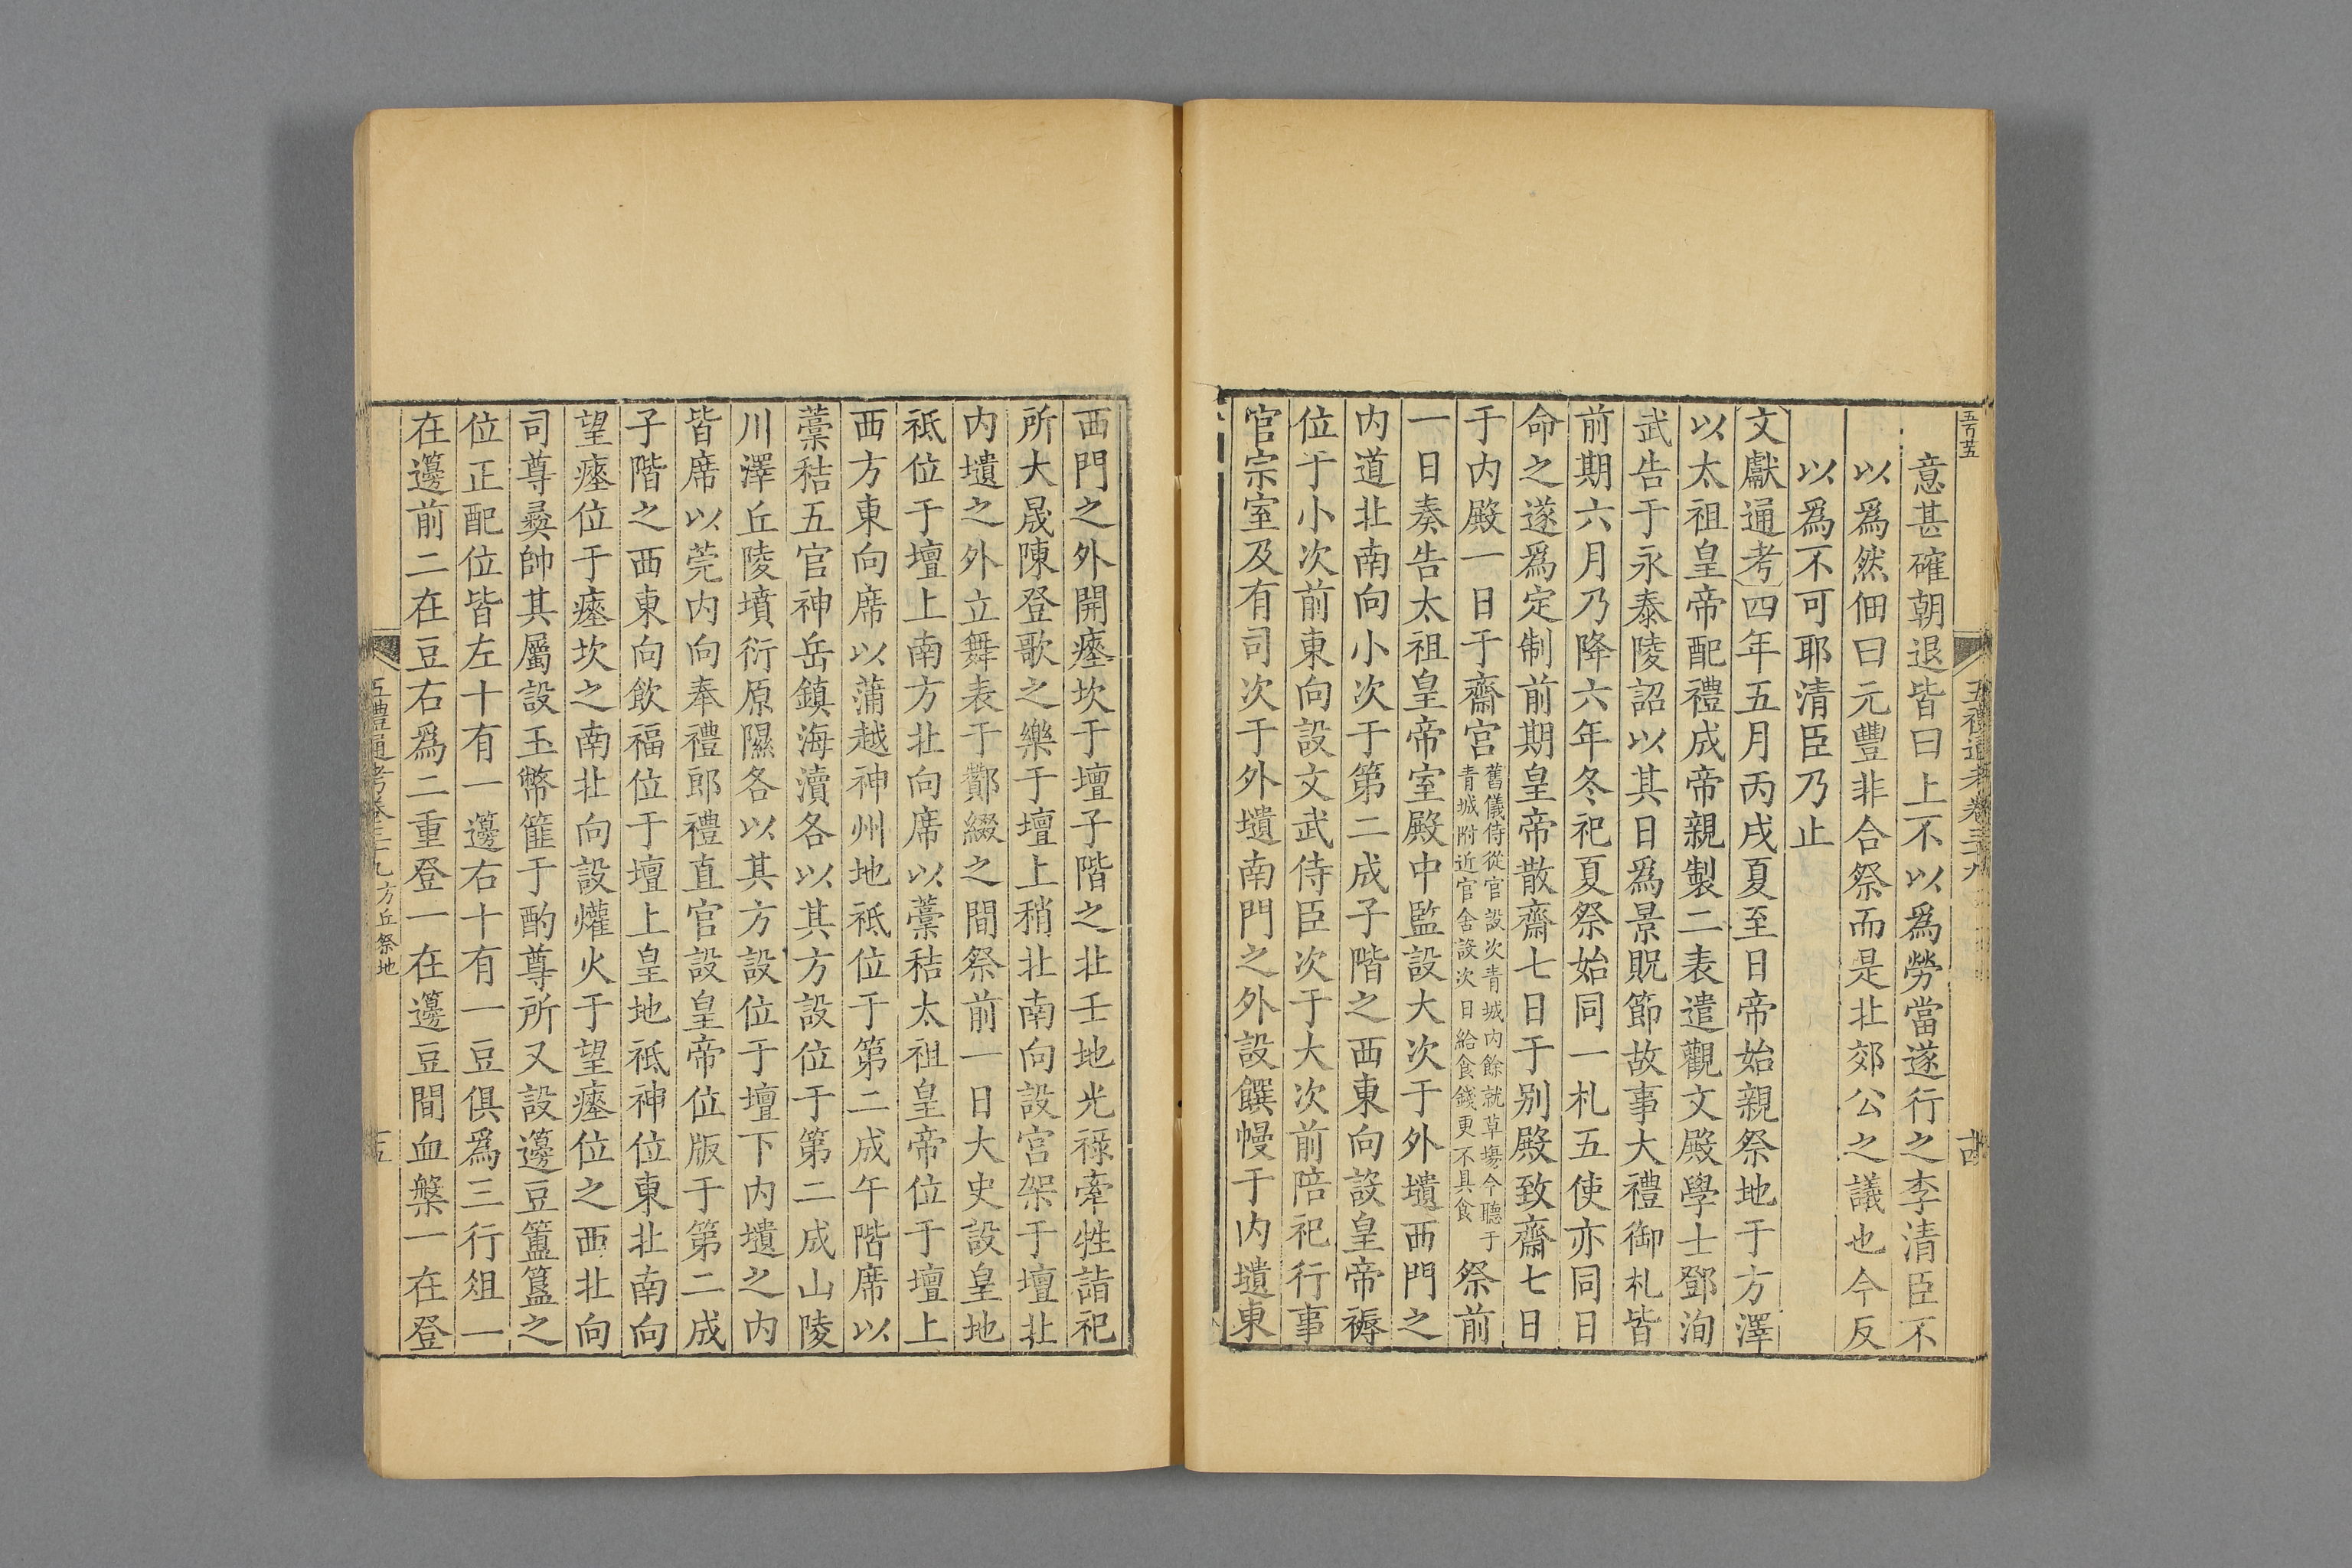 五禮通考卷三十九
意甚確朝退皆曰上不以爲勞當遂行之李清臣不
以爲然佃曰元豐非合祭而是北郊公之議也今反
以爲不可耶清臣乃止
文獻通考四年五月丙戌夏至日帝始親祭地于方澤
以太祖皇帝配禮成帝親製二表遣觀文殿學士鄧洵
武告于永泰陵詔以其日爲景貺節故事大禮御札皆
前期六月乃降六年冬祀夏祭始同一札五使亦同日
命之遂爲定制前期皇帝散齋七日于别殿致齋七日
于内殿一日于齋宮舊儀侍從官設次青城内餘就草塲今聽于青城附近官舍設次日給食錢更不具食祭前
一日奏告太祖皇帝室殿中監設大次于外壝西門之
内道北南向小次于第二成子階之西東向設皇帝褥
位于小次前東向設文武侍臣次于大次前陪祀行事
官宗室及有司次于外壝南門之外設饌幔于内壝東
西門之外開瘞坎于壇子階之北壬地光祿牽牲詣祀
所大晟陳登歌之樂于壇上稍北南向設宮架于壇北
内壝之外立舞表于酇綴之間祭前一日大史設皇地
祇位于壇上南方北向席以藁秸太祖皇帝位于壇上
西方東向席以蒲越神州地祇位于第二成午階席以
藁秸五官神岳鎮海瀆各以其方設位于第二成山陵
川澤丘陵墳衍原隰各以其方設位于壇下内壝之内
皆席以莞内向奉禮郎禮直官設皇帝位版于第二成
子階之西東向飲福位于壇上皇地祇神位東北南向
望瘞位于瘞坎之南北向設爟火于望瘞位之西北向
司尊彝帥其屬設玉幣篚于酌尊所又設籩豆簠簋之
位正配位皆左十有一籩右十有一豆俱爲三行俎一
在籩前二在豆右爲二重登一在籩豆間血槃一在登
五禮通考卷三十九方丘祭地